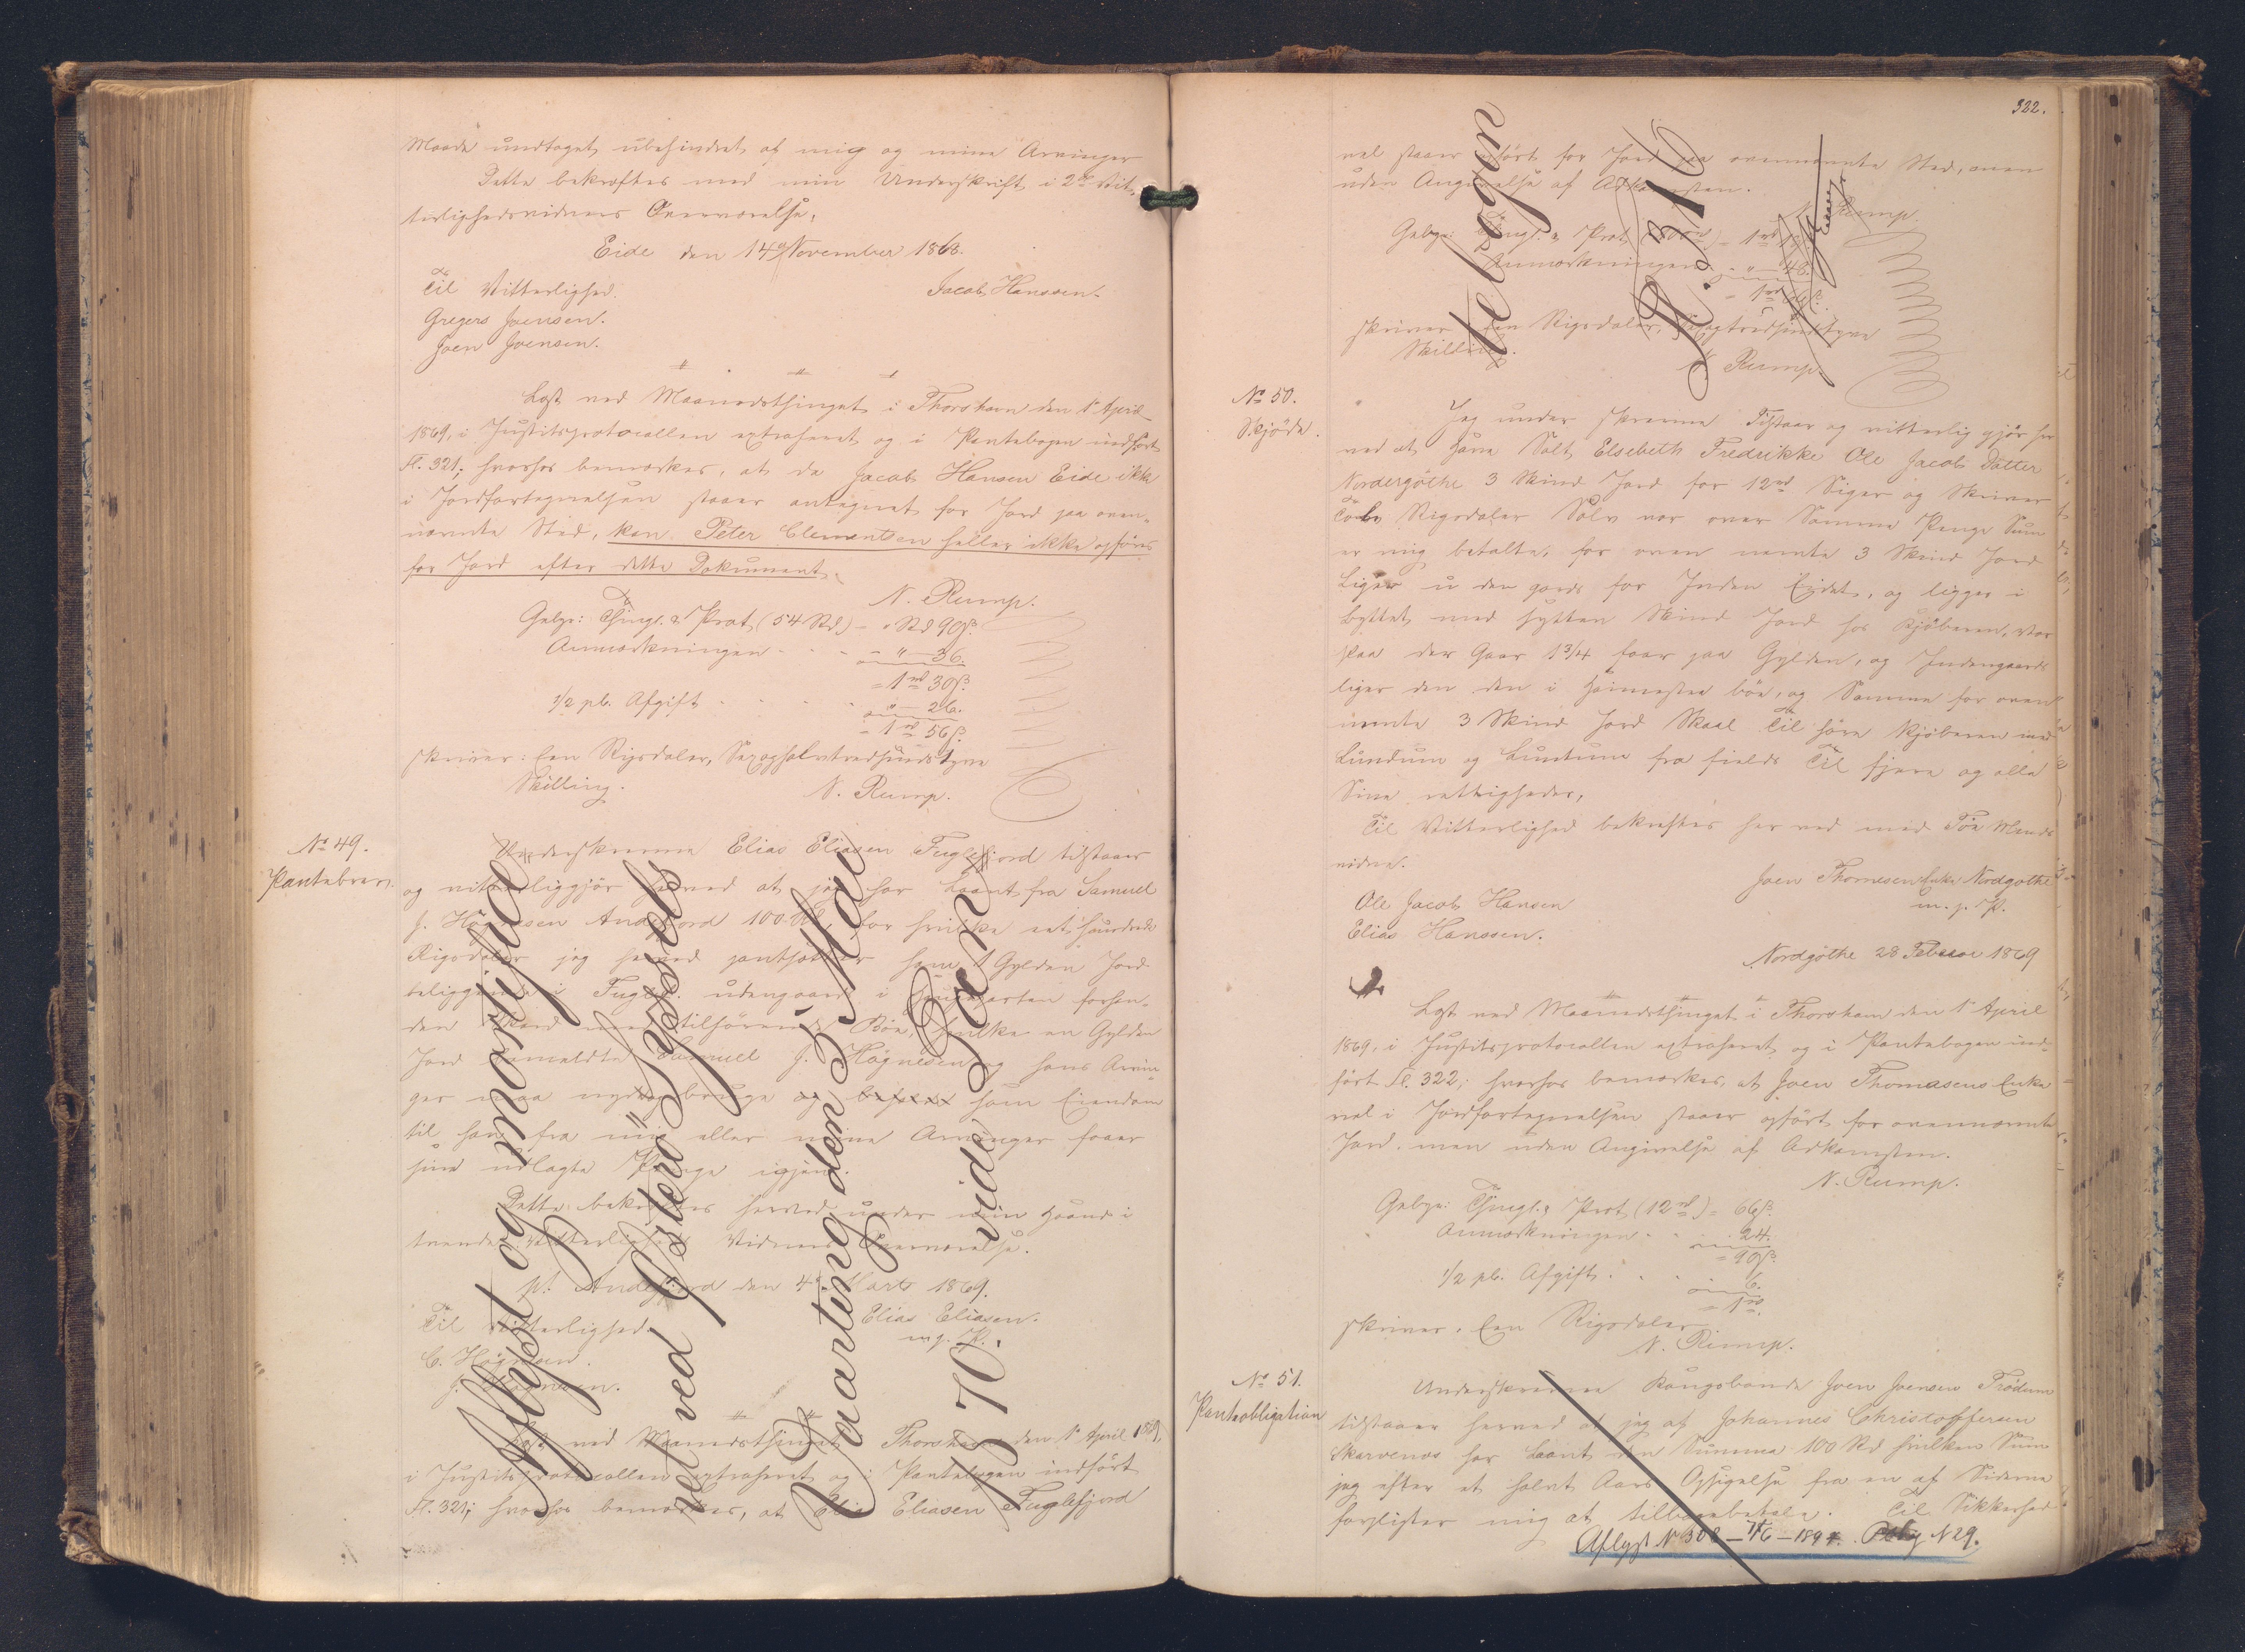 Maade undtaget, ubehindret af mig og mine Arvinger
Dette bekræftes med min Underskrift i 2de Vit-
terlighedsvidners Overværelse,
Eide den 14de November 1868.
Til Vitterlighed.
Jacob Hanssen.
Gregers Joensen.
Joen Joensen.
Læst ved Maanedsthinget i Thorshavn den 1e April
1869, i Justitsprotocollen extraheret og i Pantebogen indført
Fl. 321; hvorhos bemærkes, at da Jacob Hansen Eide ikke
i Jordfortegnelsen staaer antegnet for Jord paa oven-
nævnte Sted, kan Peter Clementsen heller ikke opføres
for Jord efter dette Dokument.
N. Rump.
Gebyr: Thingl. & Prot. (54 Rd) - " Rd 90 ß.
Anmærkningen - - - " - 36.
= 1 rd 30 ß.
1/2 pCt. Afgift - - - " - 26.
= 1 rd 56 ß.
skriver: Een Rigsdaler, Sexoghalvtredsindstyve
Skilling.
N. Rump.
No 49.
Pantebrev.
Underskrevne Elias Eliasen Fuglefjord tilstaaer
og vitterliggjør herved at jeg har laant fra Samuel
J. Høgnesen Andefjord 100 Rd, for hvilke eet hundrede
Rigsdaler jeg herved pantsætter ham 1 Gylden Jord
beliggende i Fuglefj. udengaards i forhen-
den med tilhørende Bøe, hvilke en Gylden
Jord bemeldte Samuel J. Høgnesen og hans Arvin-
ger maa nyde, bruge og som Eiendom
til han fra mig eller mine Arvinger faaer
sine udlagte Penge igjen.
Dette bekræftes herved under min Haand i
tvende Vitterligheds Vidners Overværelse.
pt. Andefjord den 4de Marts 1869.
Til Vitterlighed.
Elias Eliasen.
m. p. P.
C. Høgnesen.
J. Høgnesen.
Læst ved Maanedsthinget i Thorshavn den 1e April 1869,
i Justitsprotocollen extraheret og i Pantebogen indført
Fl. 321; hvorhos bemærkes, at Elias Eliasen Fuglefjord
Aflyst og mortificeret
ved Østerø Syssels
Vaarting den 3 Mai
1870. vide Pan
322.
vel staaer opført for Jord paa ovennævnte Sted, men
uden Angivelse af Adkomsten.
N. Rump.
Gebyr: Thingl. & Prot. (100 rd) - 1 rd
Anmærkningen - " - 48.
= 1 rd
skriver Een Rigsdaler, Sexogtredsindstyve
Skilling.
N. Rump.
tebogen
Fl. 316
No 50.
Skjøde.
Jeg under skrevene Tilstaar og vitterlig gjør her
ved at Have Solt Elsebeth Fredrikke Ole Jacob Datter
Nordergöthe 3 Skind Jord for 12 rd Siger og Skriver
Tolv Rigsdaler Sølv vor over Samme Penge Sum
er mig betalte, for oven nemte 3 Skind Jord
Liger u den gards for Inden Eidet, og ligger i
byttet med sytten Skind Jord hos Kjøberen, vor
paa der Gaar 1 3/4 faar paa Gylden, og Indengaards
liger den den i Heimesten bøe, og Samme for oven
nemte 3 Skind Jord Skaal Til høre Kjøberen med
Lundum og Luntum fra field Til fjere og alle
Sine rettigheder,
Til Vitterlighed bekræftes her ved med Toe Mends
vidne.
Joen Thomesen Enke Nordgøthe
m. p. P.
Ole Jacob Hansen
Elias Hanssen.
Nordgöthe 28 Februar 1869
Læst ved Maanedsthinget i Thorshavn den 1e April
1869, i Justitsprotocollen extraheret og i Pantebogen ind-
ført Fl. 322; hvorhos bemærkes, at Joen Thomasens Enke
vel i Jordfortegnelsen staaer opført for ovennævnte
Jord, men uden Angivelse af Adkomsten.
N. Rump.
Gebyr: Thingl. & Prot. (12 rd) = 66 ß.
Anmærkningen - - 24.
= 90 ß.
1/2 pCt. Afgift. - - 6.
= 1 rd.
skriver. Een Rigsdaler
N. Rump.
No 51.
Panteobligation
Underskrevne Kongsbonde Joen Joensen Trødum
tilstaaer herved at jeg af Johannes Christoffersen
Skarvenæs har laant den Summa 100 Rd hvilken Sum
jeg efter et halvt Aars Opsigelse fra en af Siderne
forpligter mig at tilbagebetale. Til Sikkerhed
Aflyst N 308 - 7/6 - 1894. N 29.